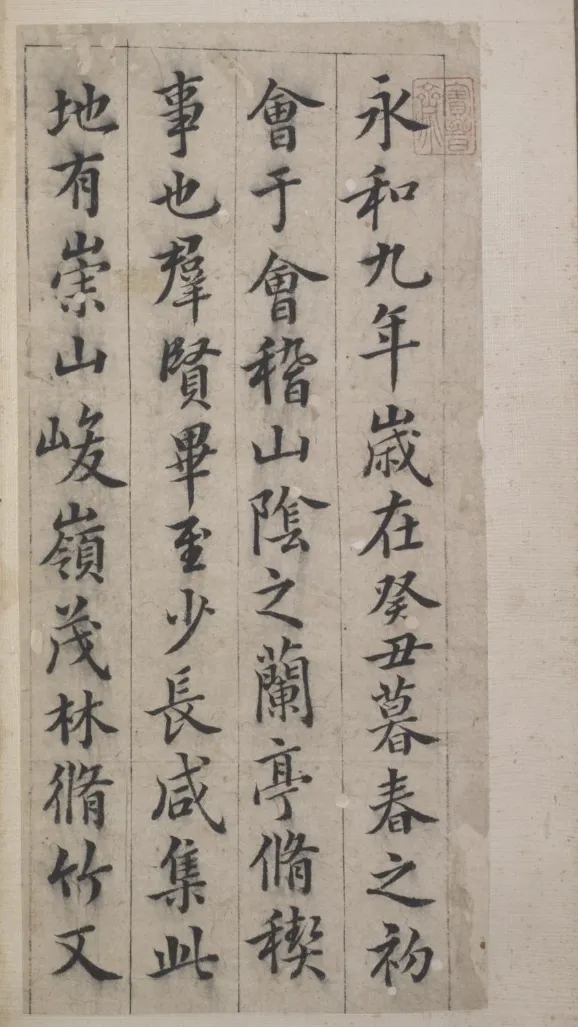 永和九年歲在癸丑暮春之初
會于會稽山陰之蘭亭脩稧
事也羣賢畢至少長咸集此
地有崇山峻嶺茂林脩竹又